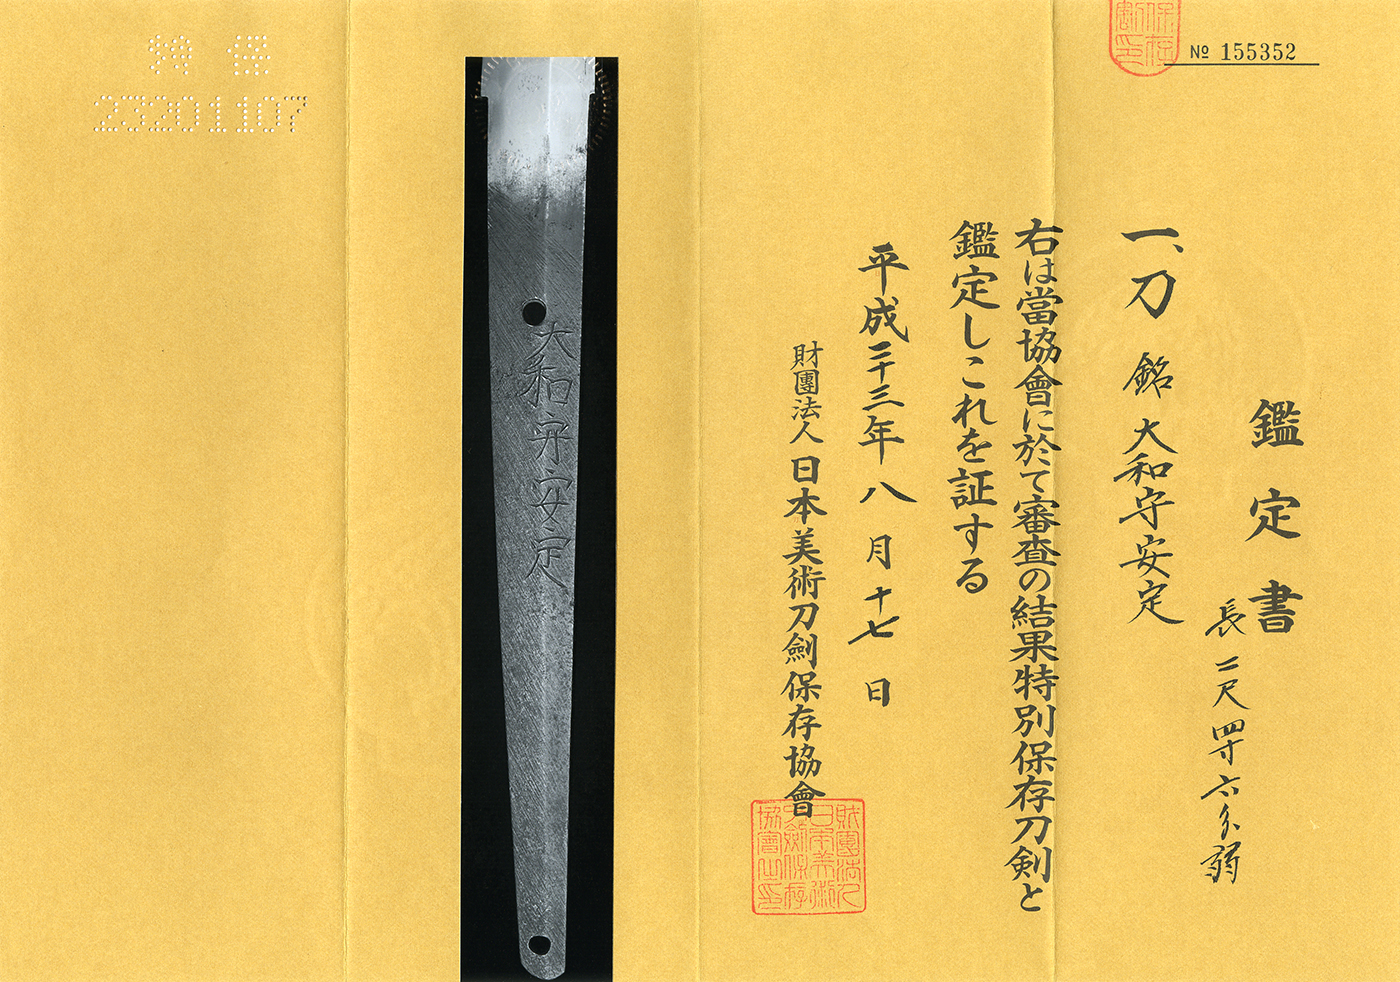 № 155352
鑑定書
一、刀 銘 大和守安定
長二尺四寸六分弱
右は當協會に於て審査の結果特別保存刀剣と
鑑定しこれを証する
平成二十三年八月十七日
財團法人日本美術刀劍保存協會
大和守安定
特保
23201107
財團法人
日本美術
刀劍保存
協會之印